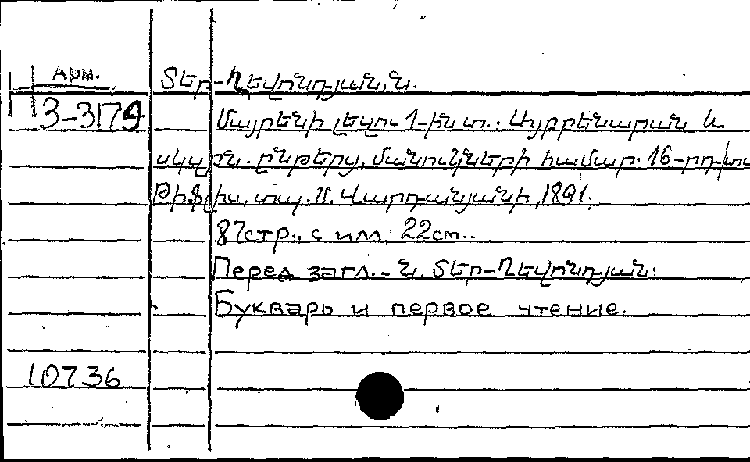 Арм.
Տեր-Ղևոնդյան, Ն.
3-3179
Մայրենի լեզու 1-ին տ.: Այբբենարան և
սկզբն. ընթերց. մանուկների համար. 16-րդ տ
Թիֆլիս, տպ. Մ. Վարդանյանի, 1891.
87стр., с илл, 22см.
Перед загл. - Ն. Տեր-Ղևոնդյան.
Букварь и первое чтение.
10736